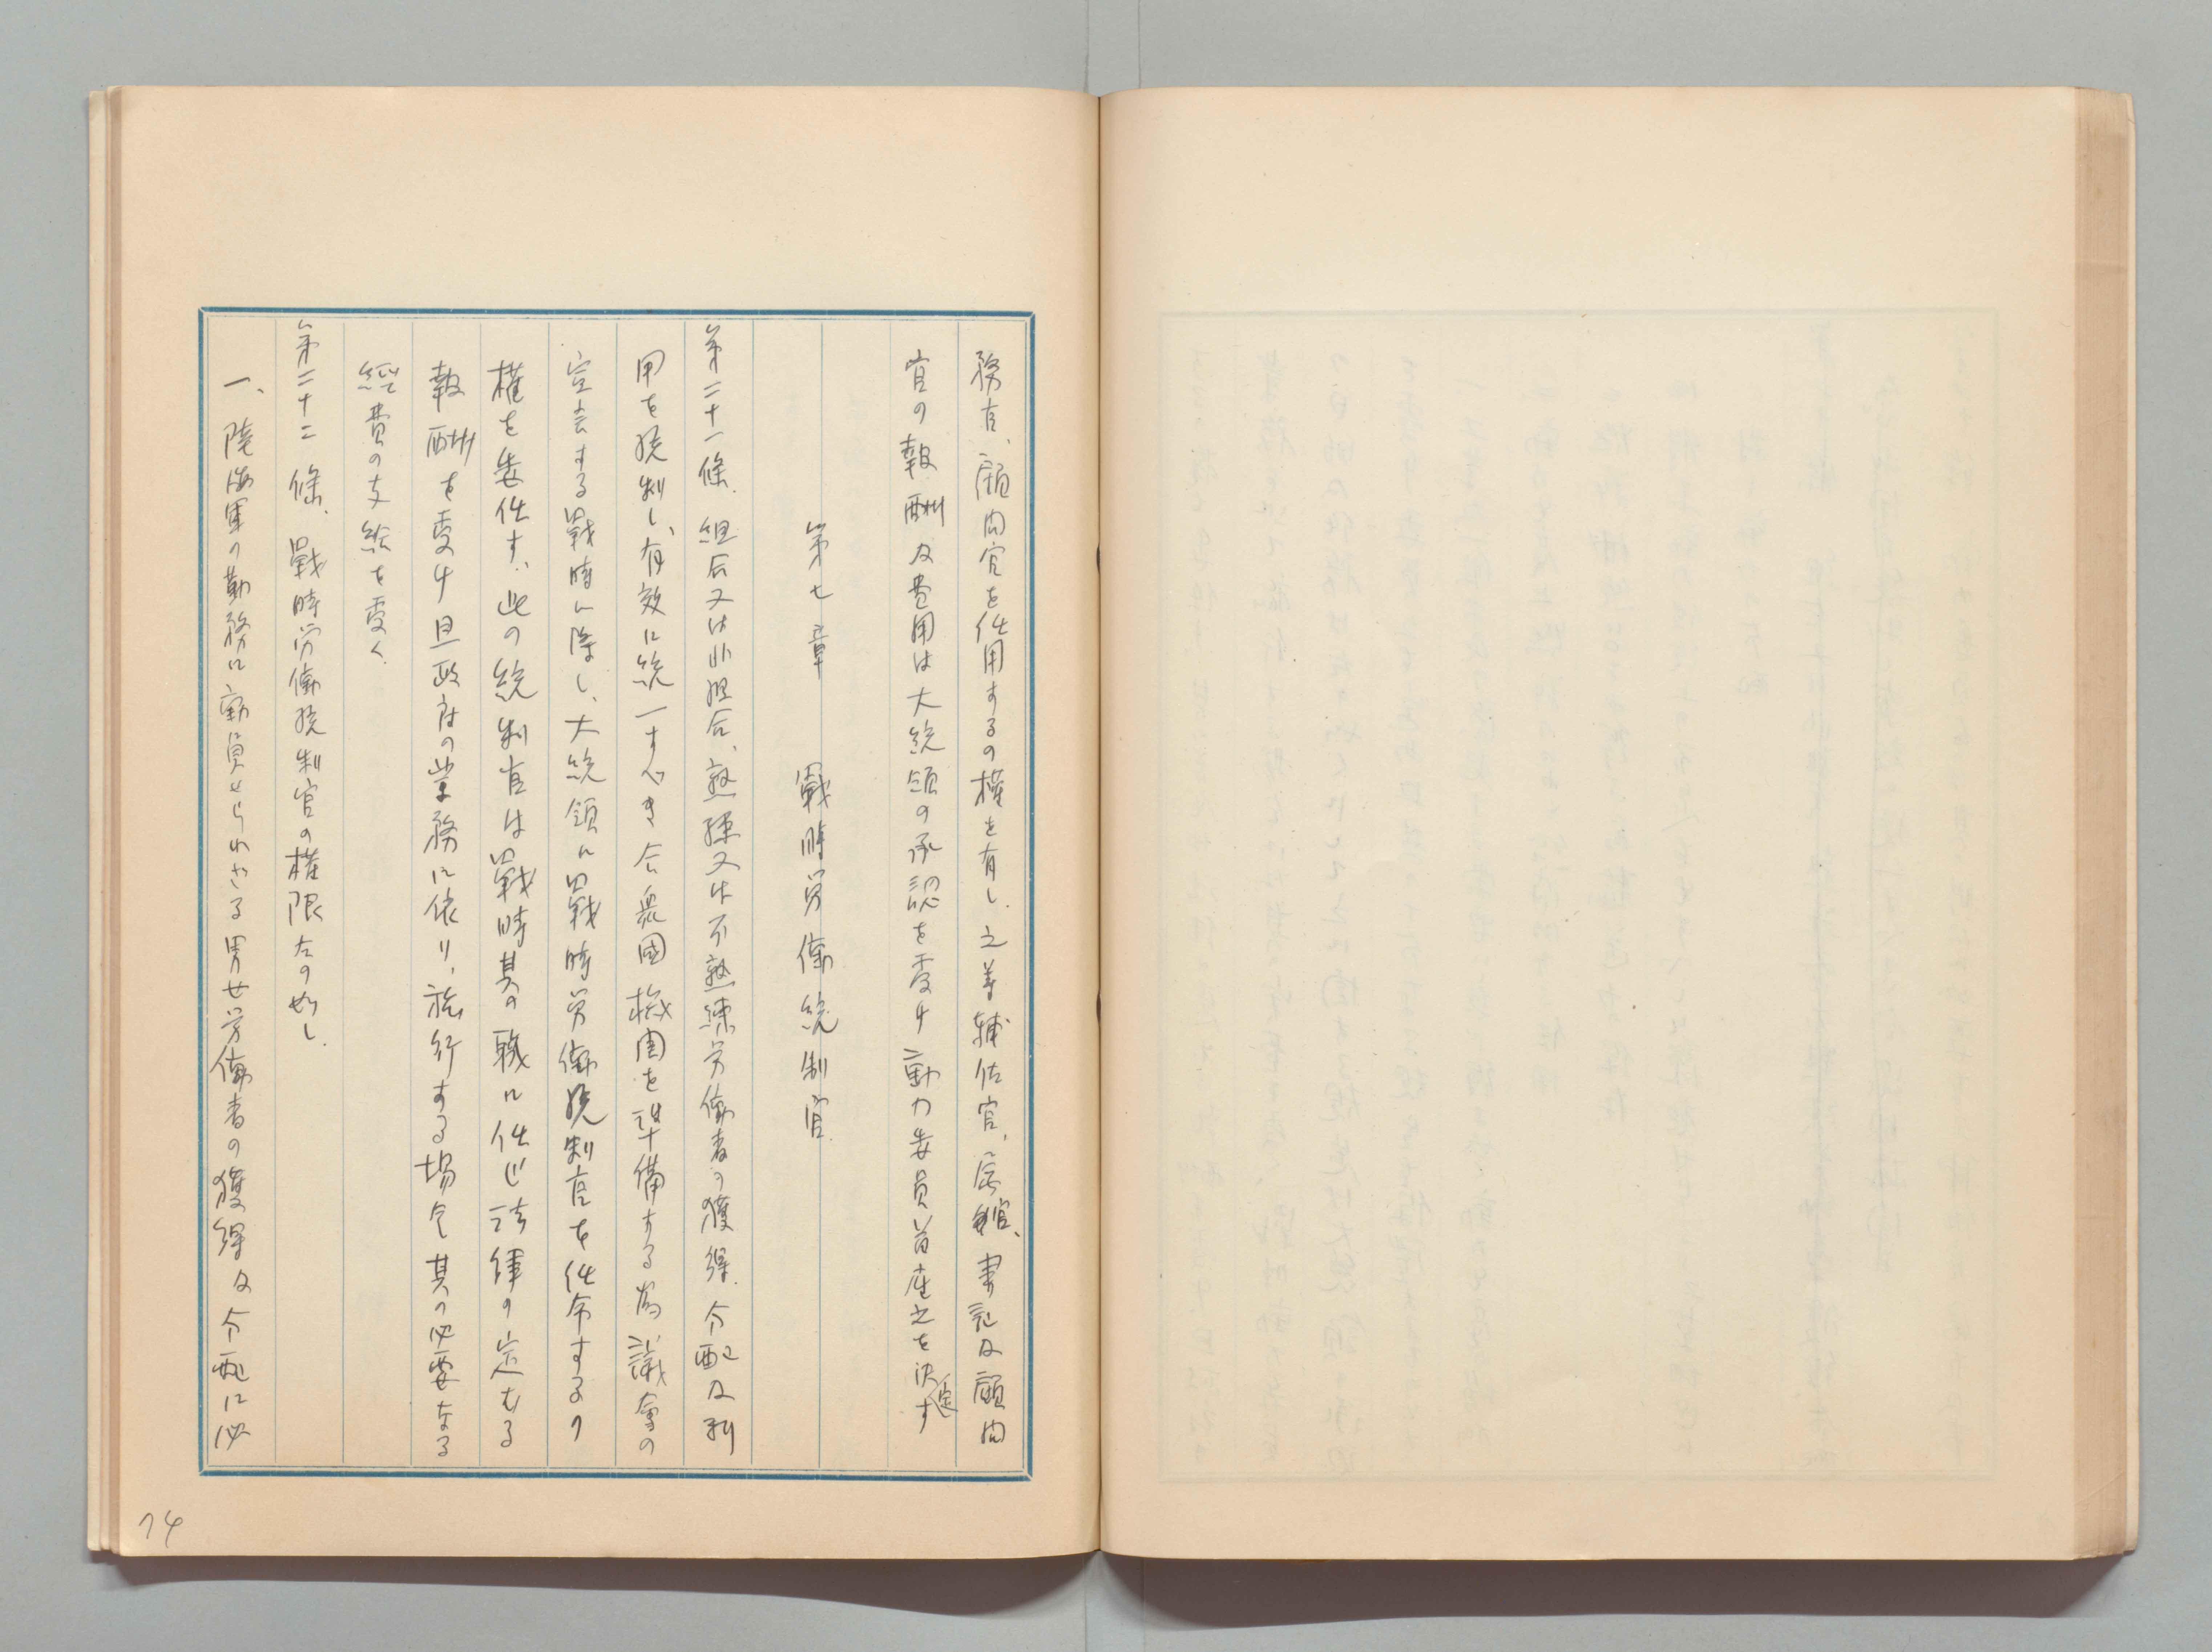 務官、顧問官を任用するの権を有し、之等輔佐官、属官、書記及顧問
官の報酬及費用は大統領の承認を受け動力委員首座之を決定す
第七章　戰時労働統制官
第二十一條、組合又は非組合、熟練又は不熟練労働者の獲得、分配及利
用を統制し、有效に統一すべき合衆國機関を準備する為、議會の
宣言する戰時に際し、大統領に戰時労働統制官を任命するの
権を委任す、此の統制官は戰時其の職に任じ法律の定むる
報酬を受け且政府の業務に依り、旅行する場合其の必要なる
經費の支給を受く
第二十二條、戰時労働統制官の権限左の如し、
一、陸海軍の勤務に動員せられさる男女労働者の獲得及分配に必
74